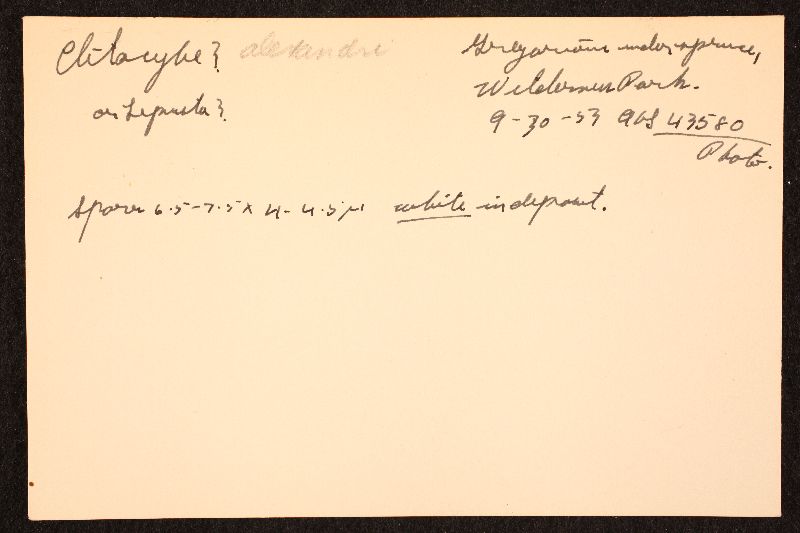 Clitocybe? alexandri
or Lepista?
Gregarious under spruce,
Wilderness Park.
9-30-53 AHS 43580
Photo.
Spores 6.5-7.5 x 4-4.5 µ white in deposit.